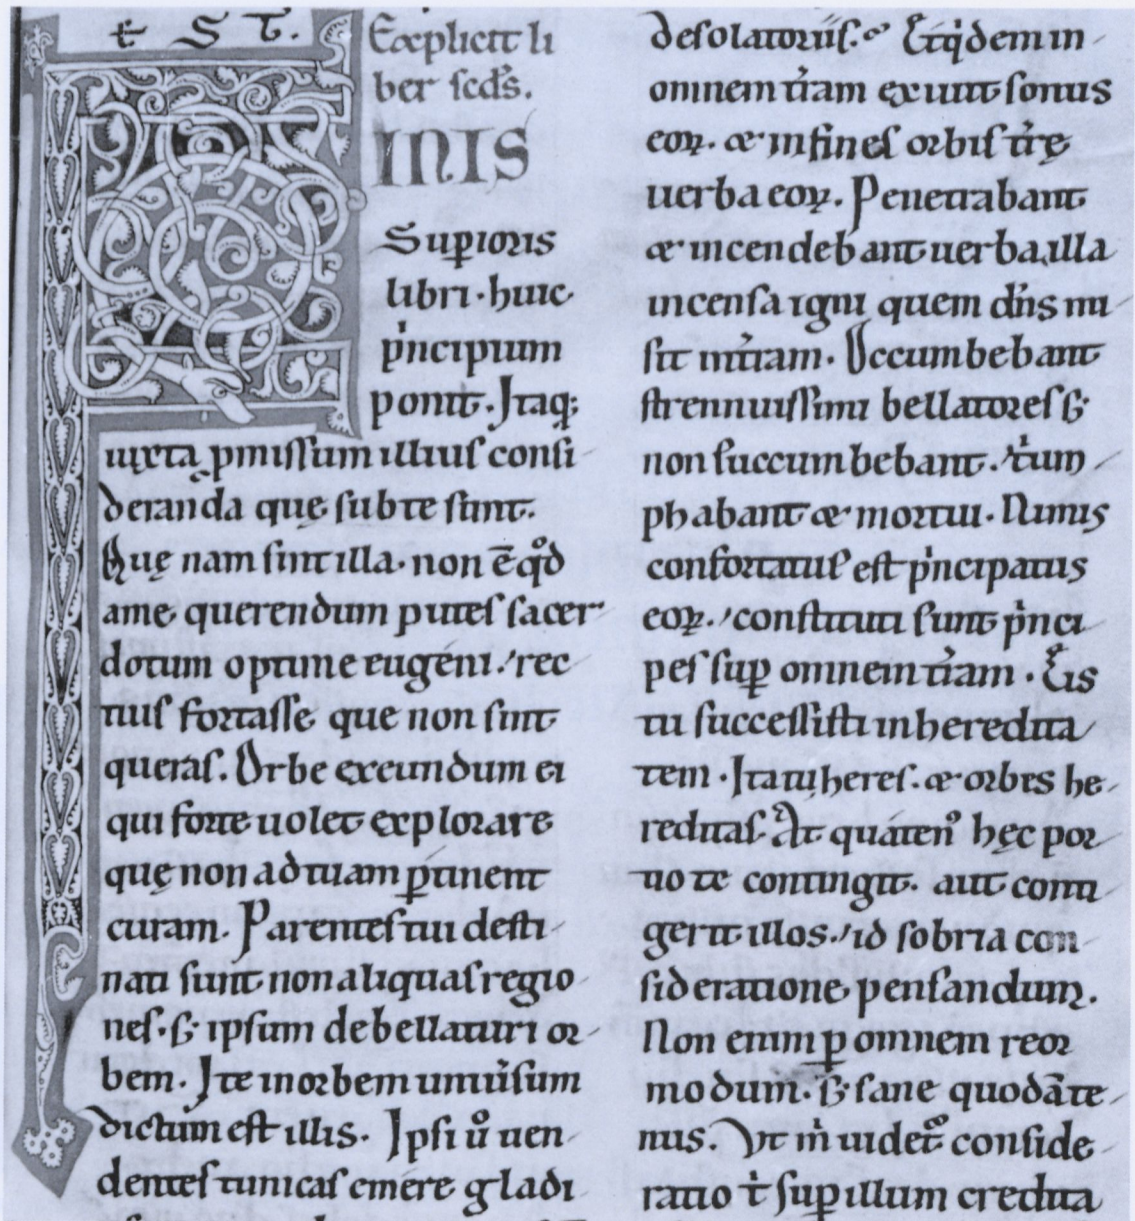 E S T.
Explicit li
ber scd̄s.
FINIS
Supioris
libri. huic
p̍ncipium
ponit. Itaq;
iuxta pmissum illius consi
deranda quę subte sunt.
Quę nam sint illa. non ē qd̊
ame querendum putes sacer
dotum optime eugeni. rec
tius fortasse que non sint
queras. Orbe exeundum ei
qui forte uolet explorare
quę non ad tuam ꝑtinent
curam. Parentes tui desti
nati sunt non aliquas regio
nes. sʒ ipsum debellaturi or
bem. Ite in orbem uniūsum
dictum est illis. Ipsi ů uen
dentes tunicas emere gladi
desolatoriis. Et q̍dem in
omnem t̄ram exiuit sonus
eoꝝ. & in fines orbis t̄rę
uerba eoꝝ. Penetrabant
& incendebant uerba illa
incensa igni quem dn̄s mi
sit in t̄ram. Occumbebant
strennuissimi bellatores sʒ
non succumbebant. t̍um
phabant & mortui. Nimis
confortatus est p̍ncipatus
eoꝝ. constituti sunt p̍nci
pes suꝑ omnem t̄ram. Eis
tu successisti in heredita
tem. Ita tu heres. & orbis he
reditas. At quaten᷒ hęc por
tio te contingit. aut conti
gerit illos. id sobria con
sideratione pensandum.
Non enim ꝑ omnem reor
modum. sʒ sane quodāte
nus. Vt m̍ uidet᷑ conside
ratio t̍ suꝑ illum credita